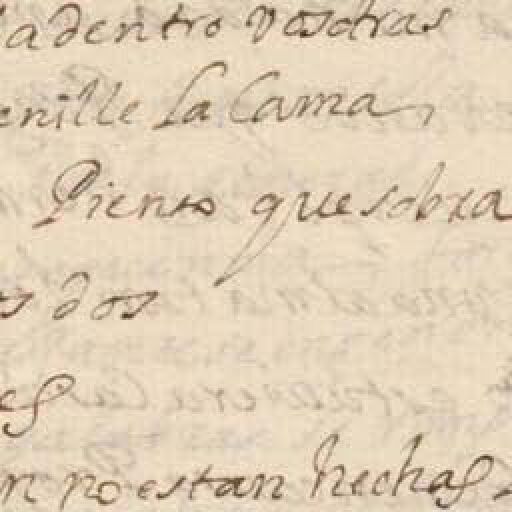 adentro vosotras
enille la cama
Pienso que sobra
s dos
es
n no estan hechas